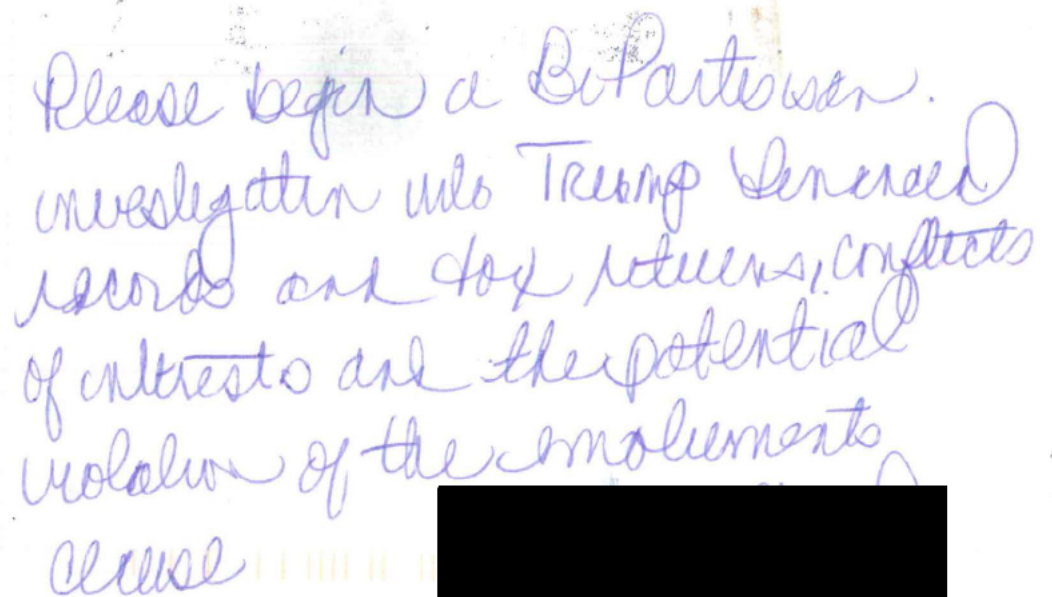 Please begin a BiPartisan.
investigation into Trump financial
records and tax returns, conflicts
of interests and the potential
violation of the emoluments
clause